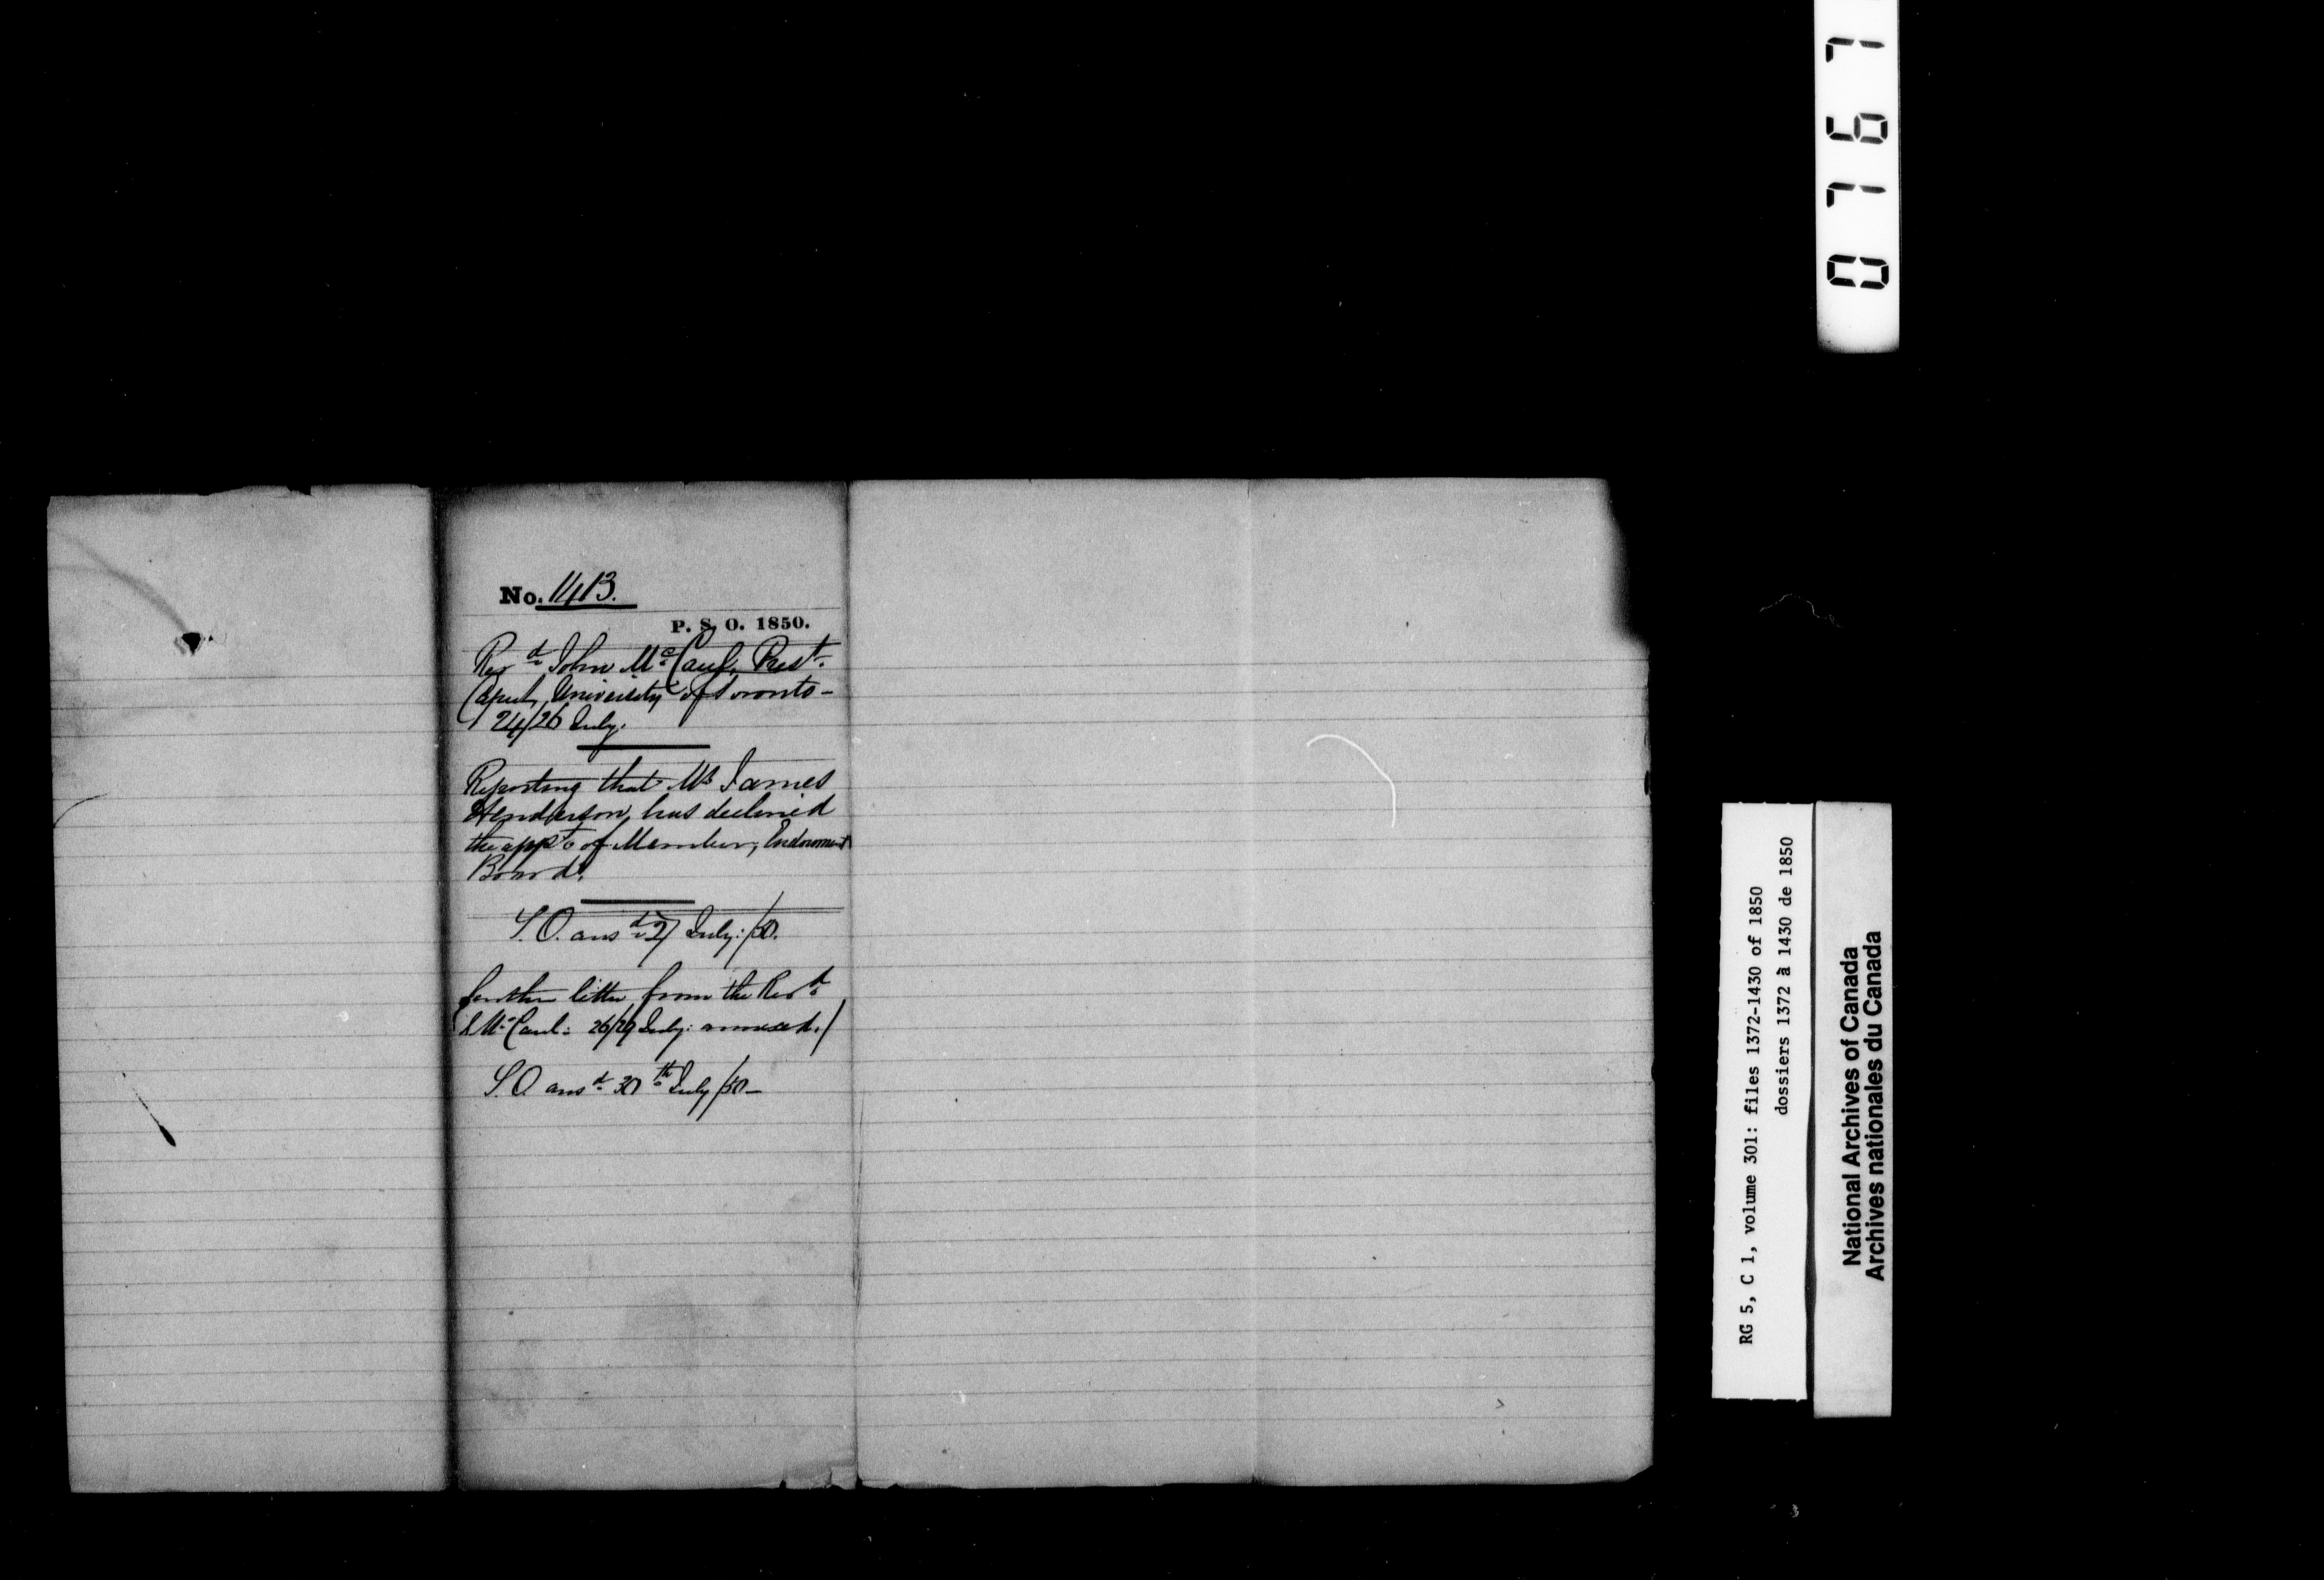 No. 1413.
P. S. O. 1850.
Revd. John McCaul, Prest.
Caput, University of Toronto -
24/26 July.
Reporting that Mr James
Henderson, has declined
the appt. of Member, Endowment
Board.
S.O. ansd. 27 July: /50.
further letter from the Revd.
McCaul: 26/29 July: annexed.)
S.O. ansd. 30th July /50 -
0767
RG 5, C 1, volume 301: files 1372-1430 of 1850
dossiers 1372 à 1430 de 1850
National Archives of Canada
Archives nationales du Canada